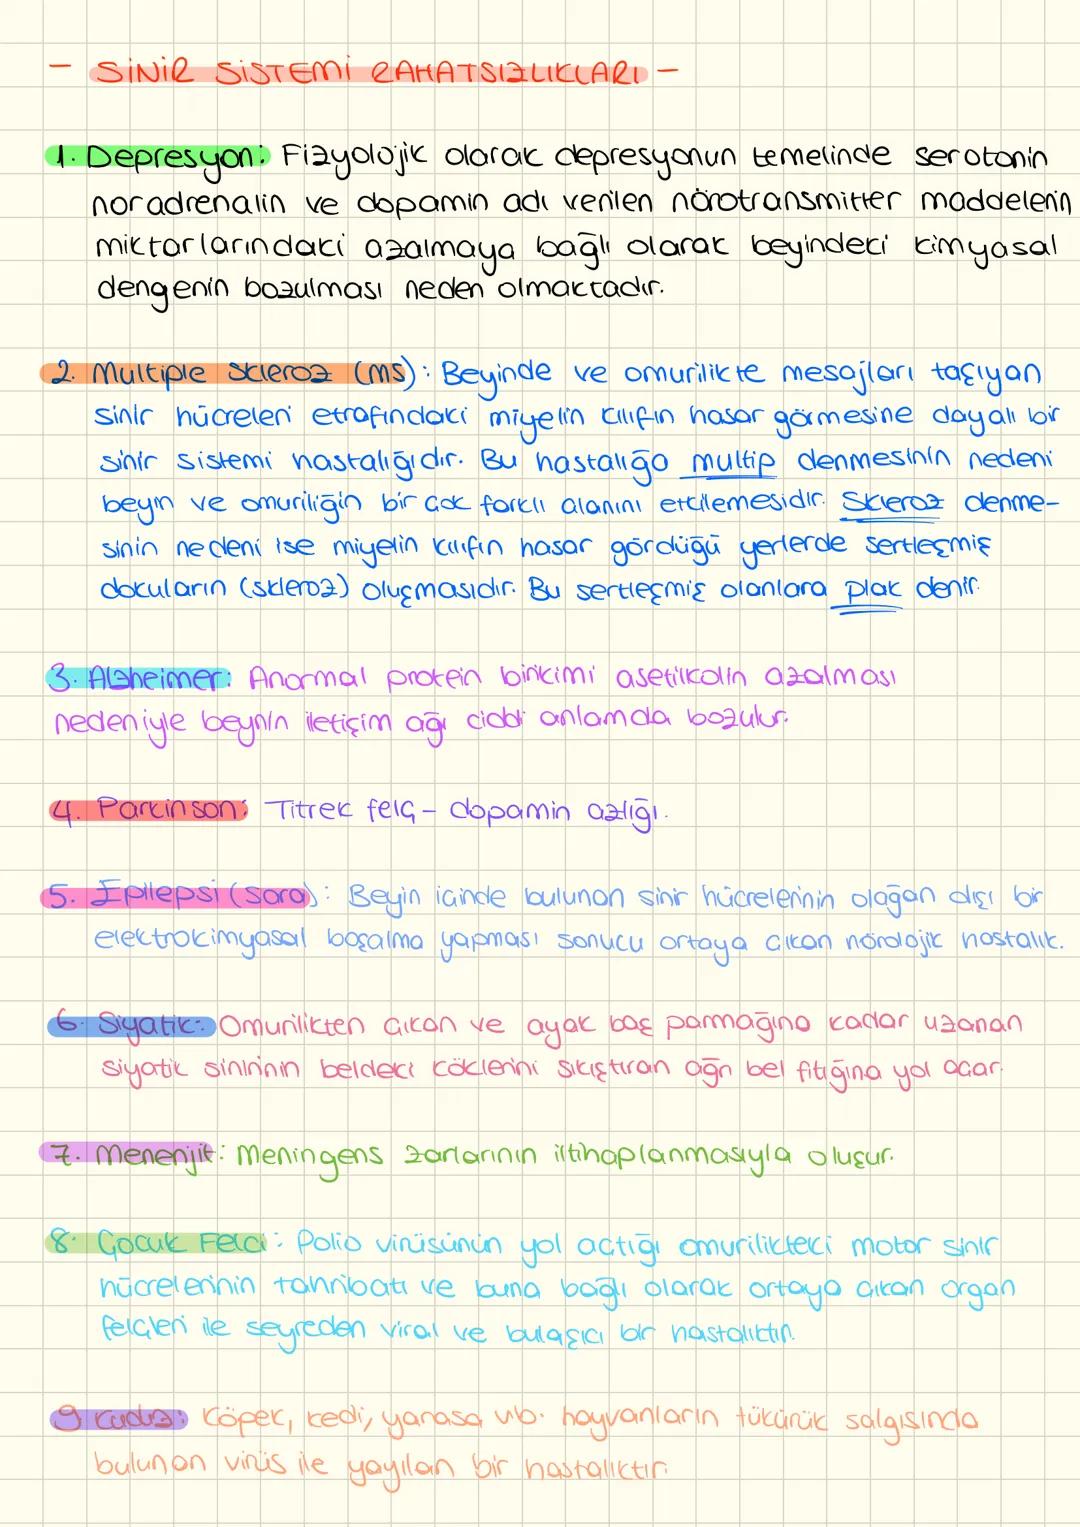 - SİNİR SİSTEMİ RAHATSIZLIKLARI -
1. Depresyon: Fizyolojik olarak depresyonun temelinde serotonin
noradrenalin ve dopamin adı verilen nörotransmitter maddelerin
miktarlarındaki azalmaya bağlı olarak beyindeki kimyasal
dengenin bozulması neden olmaktadır.
2. Multiple Skleroz (MS): Beyinde ve omurilikte mesajları taşıyan
sinir hücreleri etrafındaki miyelin kılıfın hasar görmesine dayalı bir
sinir sistemi hastalığıdır. Bu hastalığa multip denmesinin nedeni
beyin ve omuriliğin bir çok farklı alanını etkilemesidir. Skleroz denme-
sinin nedeni ise miyelin kılıfın hasar gördüğü yerlerde sertleşmiş
dokuların (skleroz) oluşmasıdır. Bu sertleşmiş alanlara plak denir.
3. Alzheimer: Anormal protein birikimi asetilkolin azalması
nedeniyle beynin iletişim ağı ciddi anlamda bozulur.
4. Parkinson: Titrek felç - dopamin azlığı.
5. Epilepsi (sara): Beyin içinde bulunan sinir hücrelerinin olağan dışı bir
elektrokimyasal boşalma yapması sonucu ortaya çıkan nörolojik hastalık.
6. Siyatik: Omurilikten çıkan ve ayak baş parmağına kadar uzanan
siyatik sinirinin beldeki köklerini sıkıştıran ağrı bel fıtığına yol açar.
7. Menenjit: Meningens zarlarının iltihaplanmasıyla oluşur.
8. Çocuk Felci: Polio virüsünün yol açtığı omurilikteki motor sinir
hücrelerinin tahribatı ve buna bağlı olarak ortaya çıkan organ
felçleri ile seyreden viral ve bulaşıcı bir hastalıktır.
9. Kuduz: Köpek, kedi, yarasa vb. hayvanların tükürük salgısında
bulunan virüs ile yayılan bir hastalıktır.